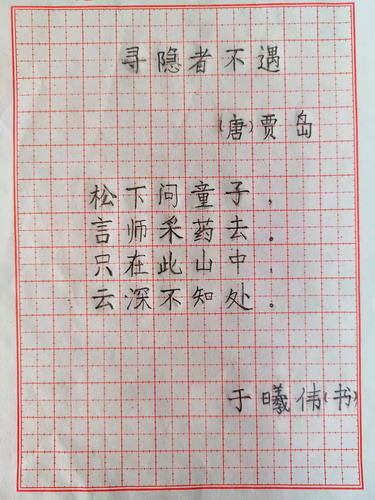 寻隐者不遇
(唐)贾岛
松下问童子，
言师采药去。
只在此山中，
云深不知处。
于曦伟(书)